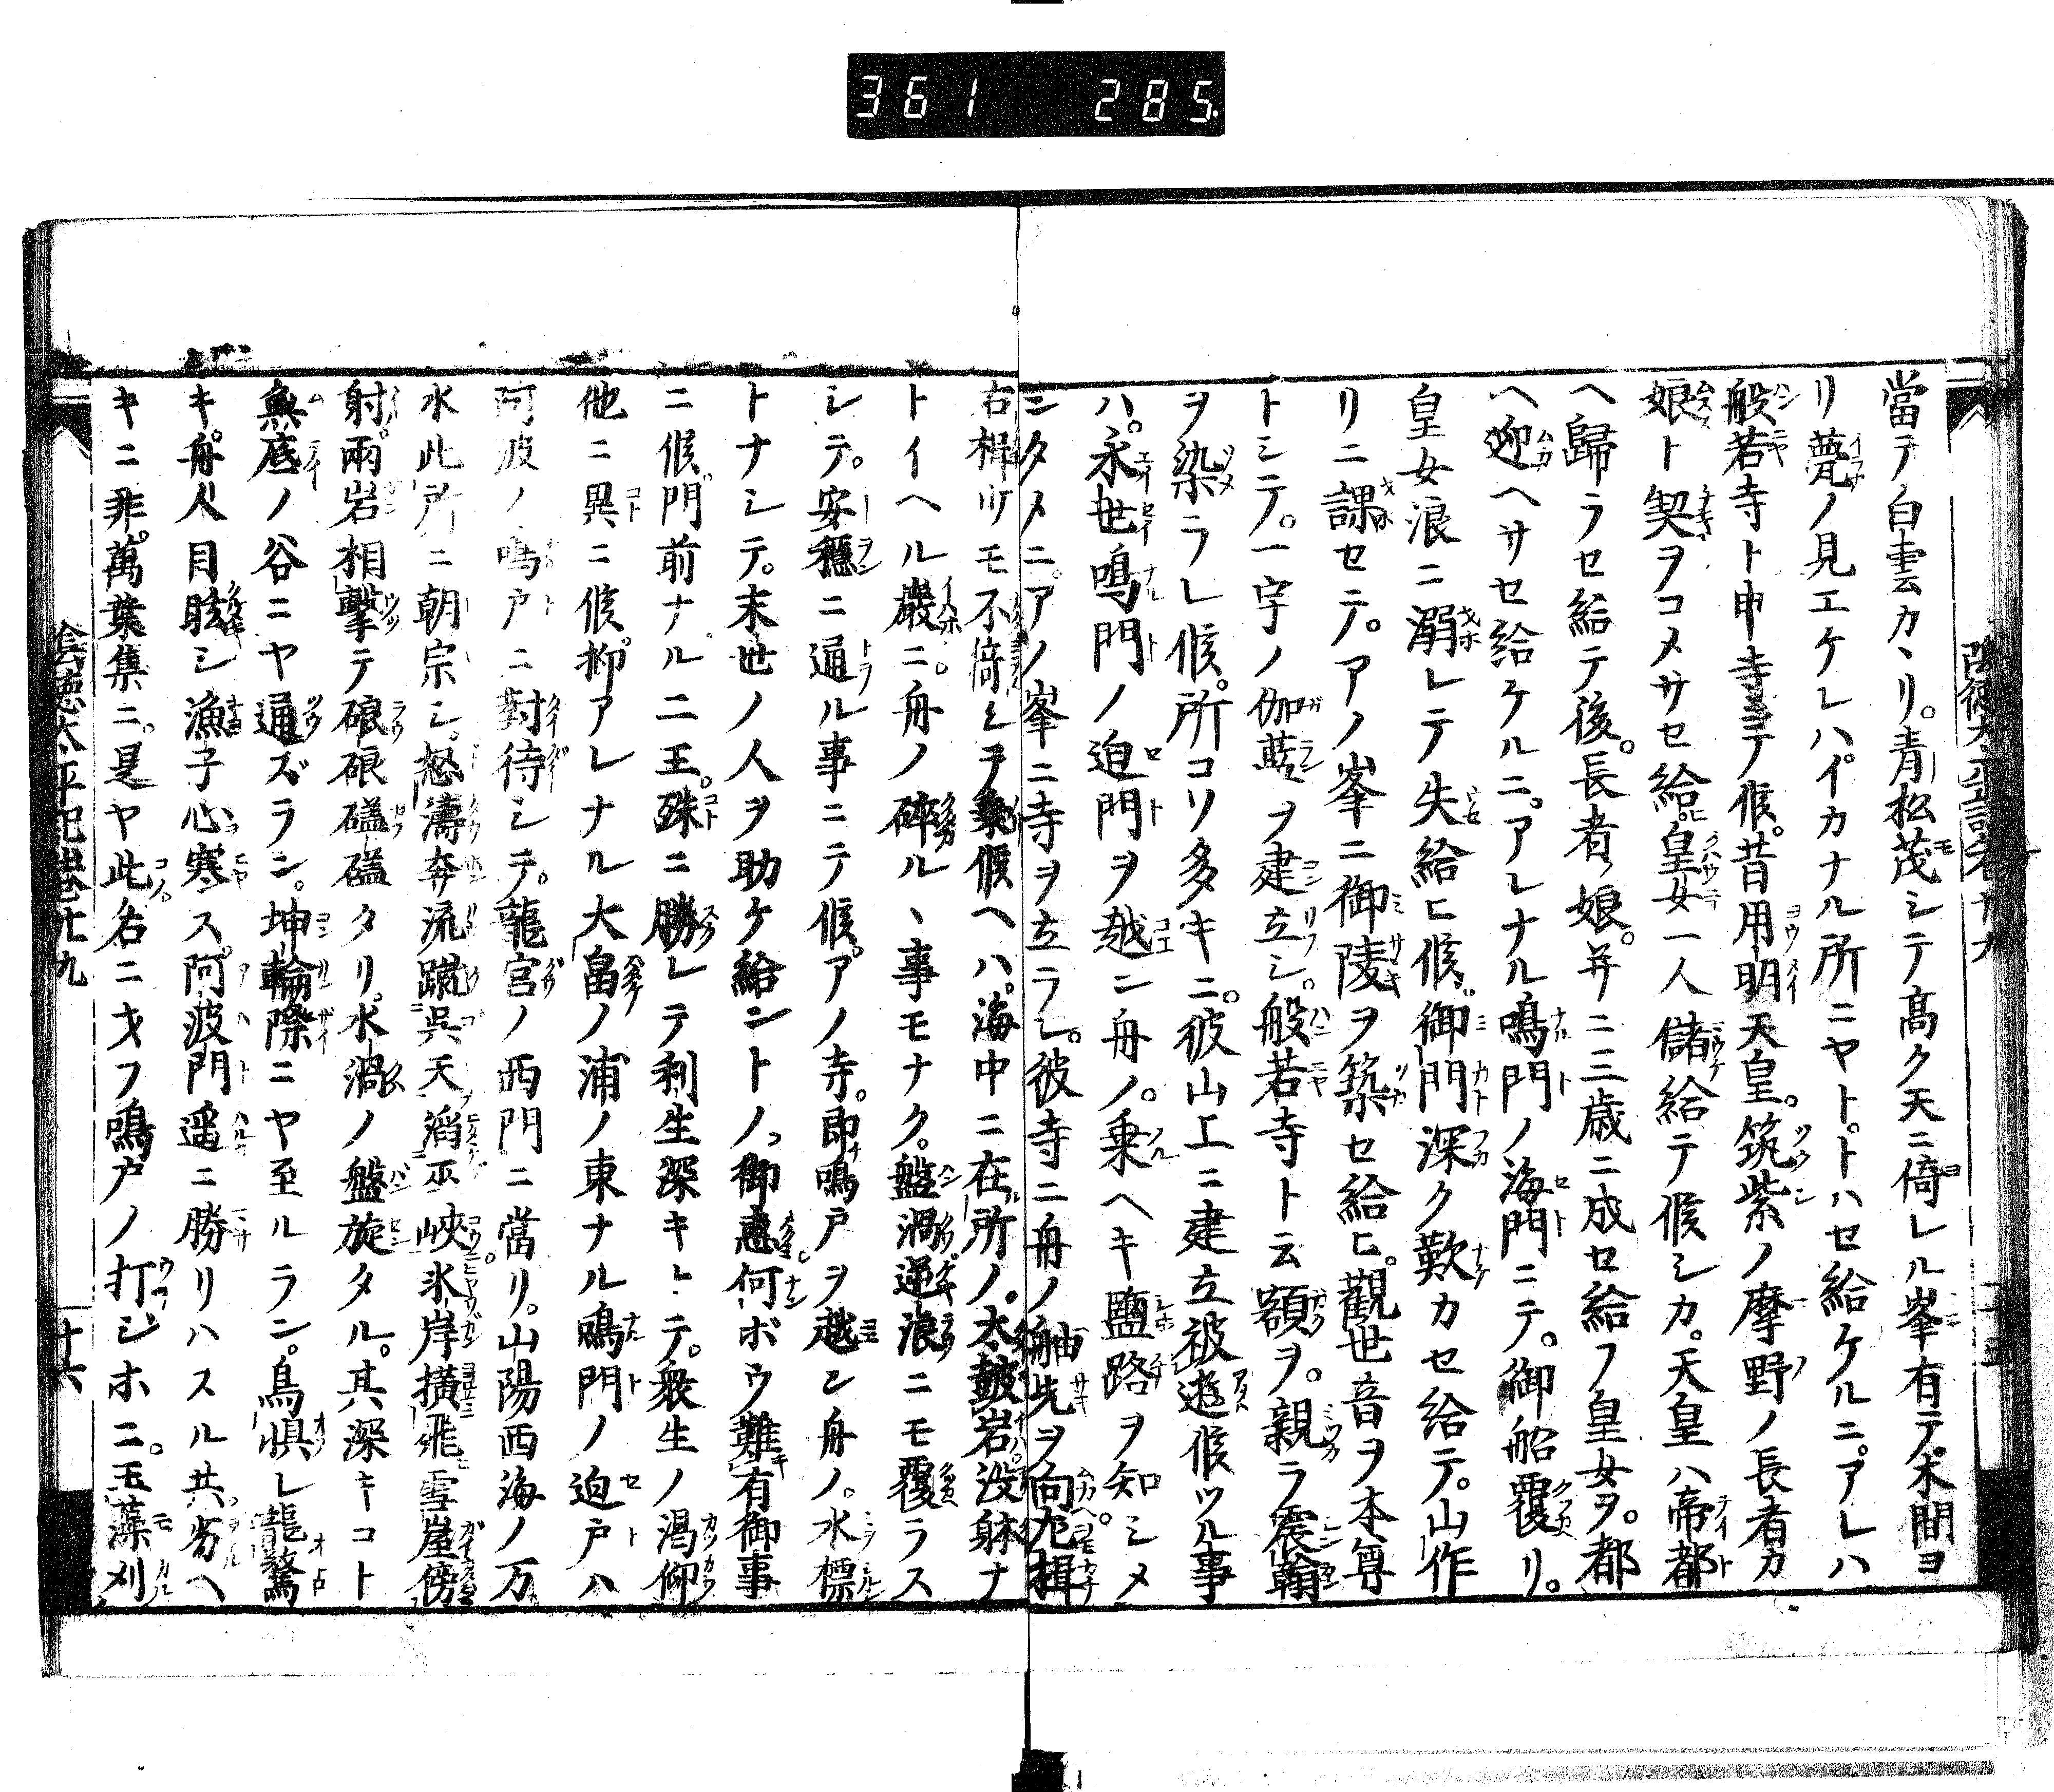 361 285
當テ白雲カヽリ。青松茂シテ高ク天ニ倚レル峯有テ。木間ヨ
リ甍ノ見エケレハ。イカナル所ニヤト。トハセ給ケルニ。アレハ
般若寺ト申寺ニテ候。昔用明天皇。筑紫ノ摩野ノ長者カ
娘ト契ヲコメサセ給ヒ。皇女一人儲給テ候シカ。天皇ハ帝都
ヘ歸ラセ給テ後。長者ノ娘。并ニ三歳ニ成セ給フ皇女ヲ。都
ヘ迎ヘサセ給ケルニ。アレナル鳴門ノ海門ニテ。御船覆リ。
皇女浪ニ溺レテ失給ヒ候。御門深ク歎カセ給テ。山作
リニ課セテ。アノ峯ニ御陵ヲ築セ給ヒ。觀世音ヲ本尊
トシテ。一宇ノ伽藍ヲ建立シ。般若寺ト云額ヲ。親ラ震翰
ヲ染ラレ候。所コソ多キニ。彼山上ニ建立被遊候ツル事
ハ。永世鳴門ノ迫門ヲ越ン舟ノ。乗ヘキ鹽路ヲ知シメ
ンタメニ。アノ峯ニ寺ヲ立ラレ。彼寺ニ舟ノ舳先ヲ向ヘ。左楫
右楫ツモ不倚シテ乗候ヘハ。海中ニ在所ノ。太皷岩没躰ナ
トイヘル巖ニ。舟ノ碎ルヽ事モナク。盤渦逆浪ニモ覆ラス
シテ。安穩ニ通ル事ニテ候。アノ寺。即鳴戸ヲ越ン舟ノ。水標
トナシテ。末世ノ人ヲ助ケ給ントノ。御惠何ボウ難有御事
ニ候。門前ナル二王。殊ニ勝レテ利生深キトテ。衆生ノ渇仰
他ニ異ニ候。抑アレナル大畠ノ浦ノ東ナル鳴門ノ迫戸ハ
阿波ノ鳴戸ニ對待シテ。龍宮ノ西門ニ當リ。山陽西海ノ万
水此所ニ朝宗シ。怒濤奔流蹴呉天滔巫峽。氷岸横飛雪崖傍
射。兩岩相擊テ硠硠礚礚タリ。水渦ノ盤旋タル。其深キコト
無底ノ谷ニヤ通ズラン。坤輪際ニヤ至ルラン。鳥惧レ龍驚
キ。舟人目眩シ漁子心寒ス。阿波門遥ニ勝リハスル共。劣ヘ
キニ非。萬葉集ニ。是ヤ此名ニヲフ鳴戸ノ打ジホニ。玉藻刈
陰徳太平記巻廿九
十六